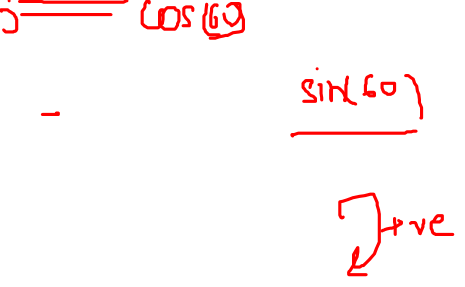 cos(60)
sin(60)
-
+ve